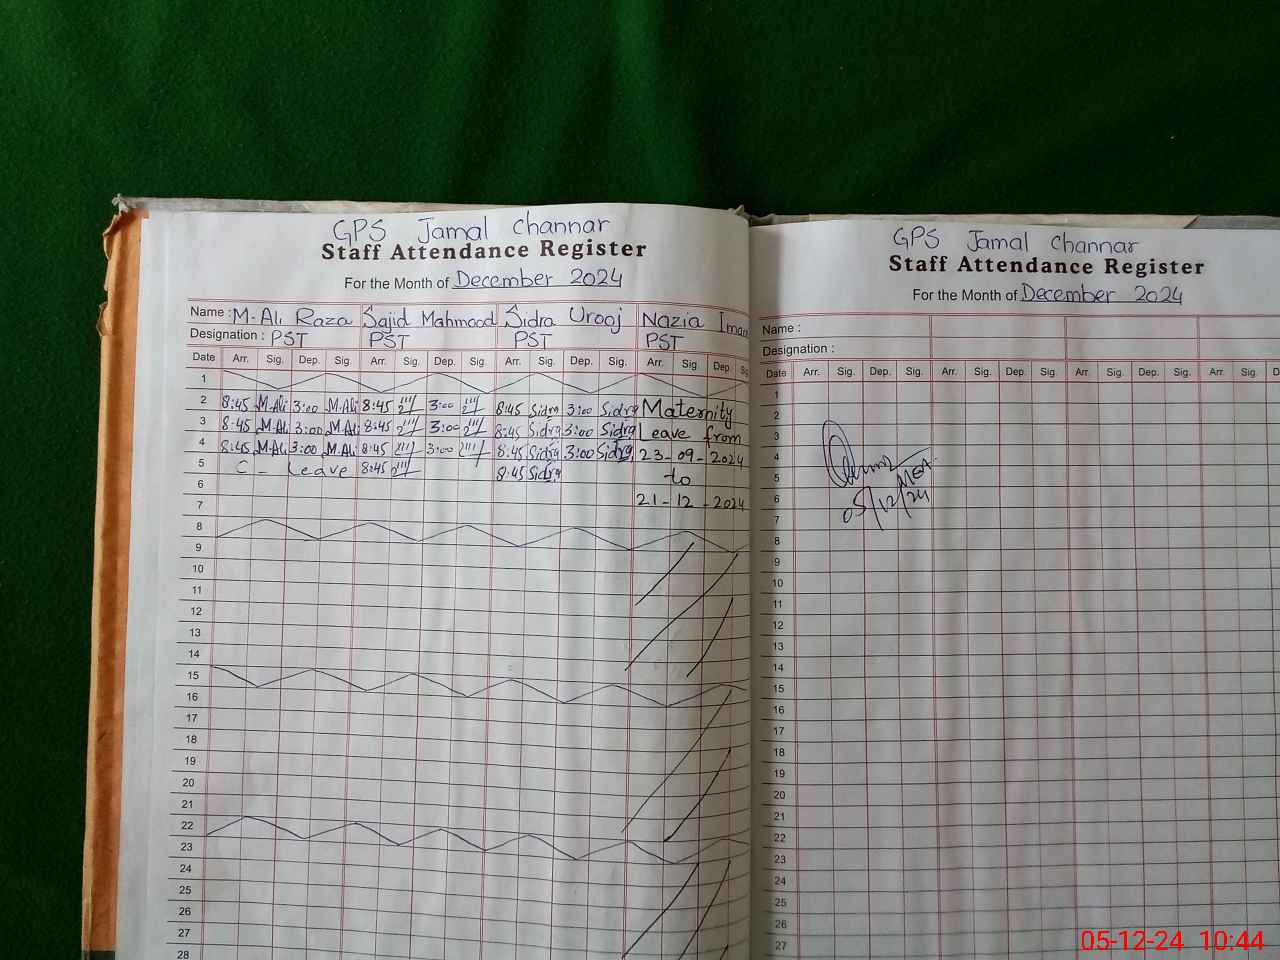 GPS Jamal Channar
Staff Attendance Register
For the Month of December 2024
Name : M-Ali Raza Sajid Mahmood Sidra Urooj Nazia Iman
Designation : PST PST PST PST
Date Arr. Sig. Dep. Sig. Arr. Sig. Dep. Sig. Arr. Sig. Dep. Sig. Arr. Sig Dep.
1
2 8:45 M.Ali 3:00 M.Ali 8:45 3:00 8:45 Sidra 3:00 Sidra Maternity
3 8:45 M.Ali 3:00 M.Ali 8:45 3:00 8:45 Sidra 3:00 Sidra Leave from
4 8:45 M.Ali 3:00 M.Ali 8:45 3:00 8:45 Sidra 3:00 Sidra 23-09-2024
5 C - Leave 8:45 8:45 Sidra to
6
7 21-12-2024
8
9
10
11
12
13
14
15
16
17
18
19
20
21
22
23
24
25
26
27
28
GPS Jamal Channar
Staff Attendance Register
For the Month of December 2024
Name :
Designation :
Date Arr. Sig. Dep. Sig. Arr. Sig. Dep. Sig. Arr. Sig. Dep. Sig. Arr. Sig.
1
2
3
4
5 MEA
6 05/12/24
7
8
9
10
11
12
13
14
15
16
17
18
19
20
21
22
23
24
25
26
27
05-12-24 10:44